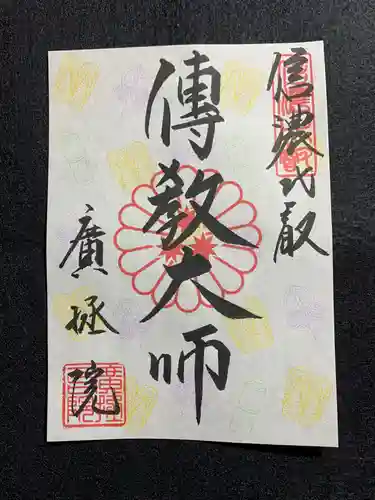 信濃比叡
傳教大師
廣拯院